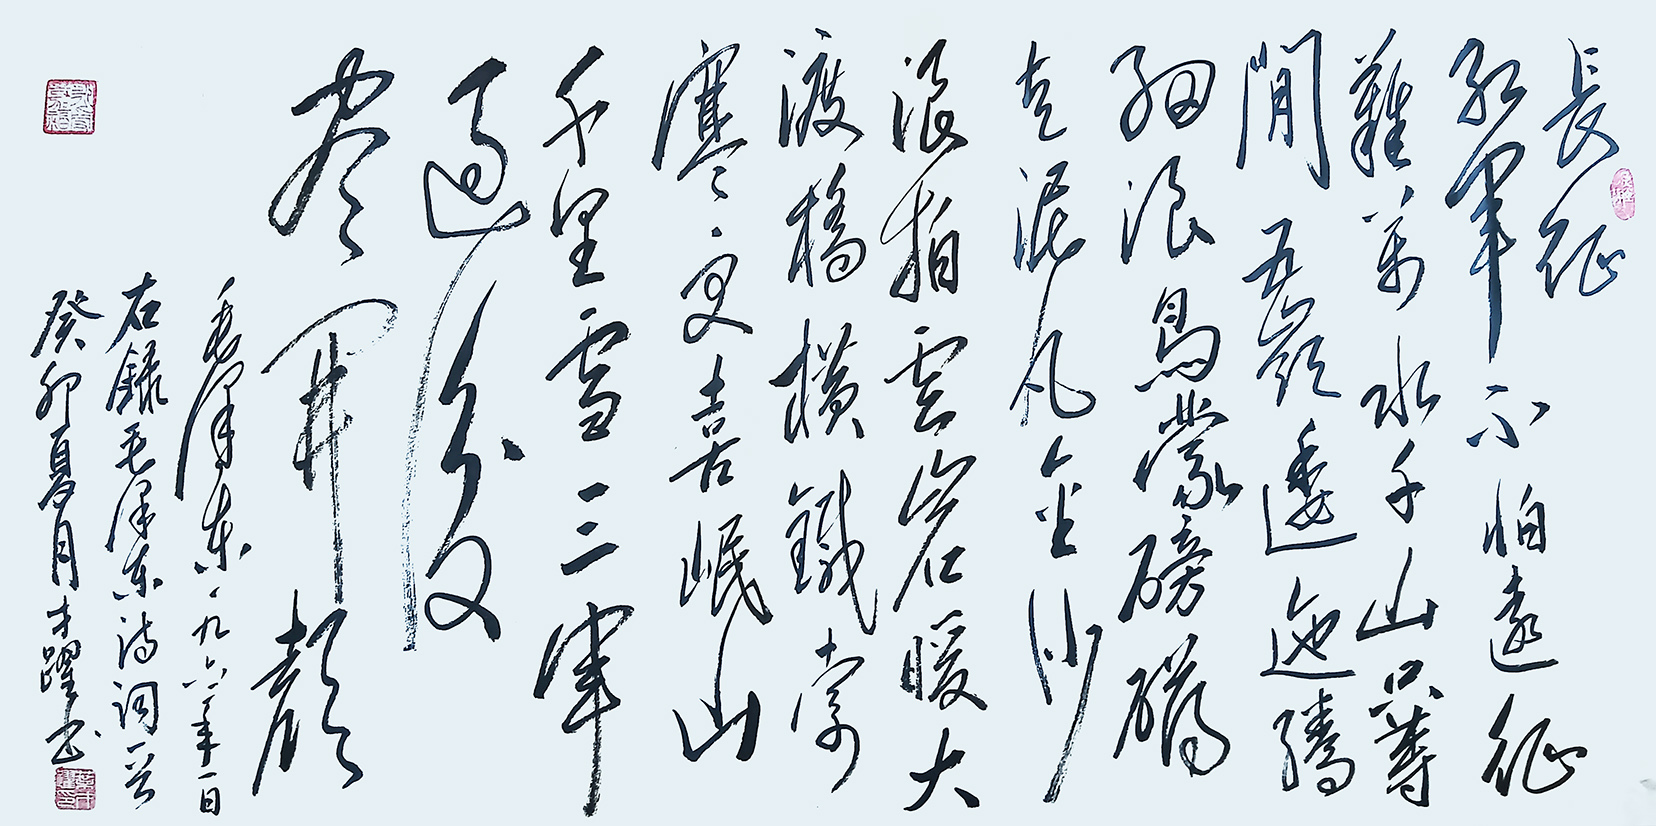 長征
红軍不怕遠征
難萬水千山只等
閒五嶺逶迤腾
细浪烏蒙磅礴
走泥丸金沙
浪拍雲崖暖大
渡橋橫鐵索
寒更喜岷山
千里雪三軍
過後
尽開颜
毛澤東一九六年一日
右録毛澤東詩詞一首
癸卯夏月躍书